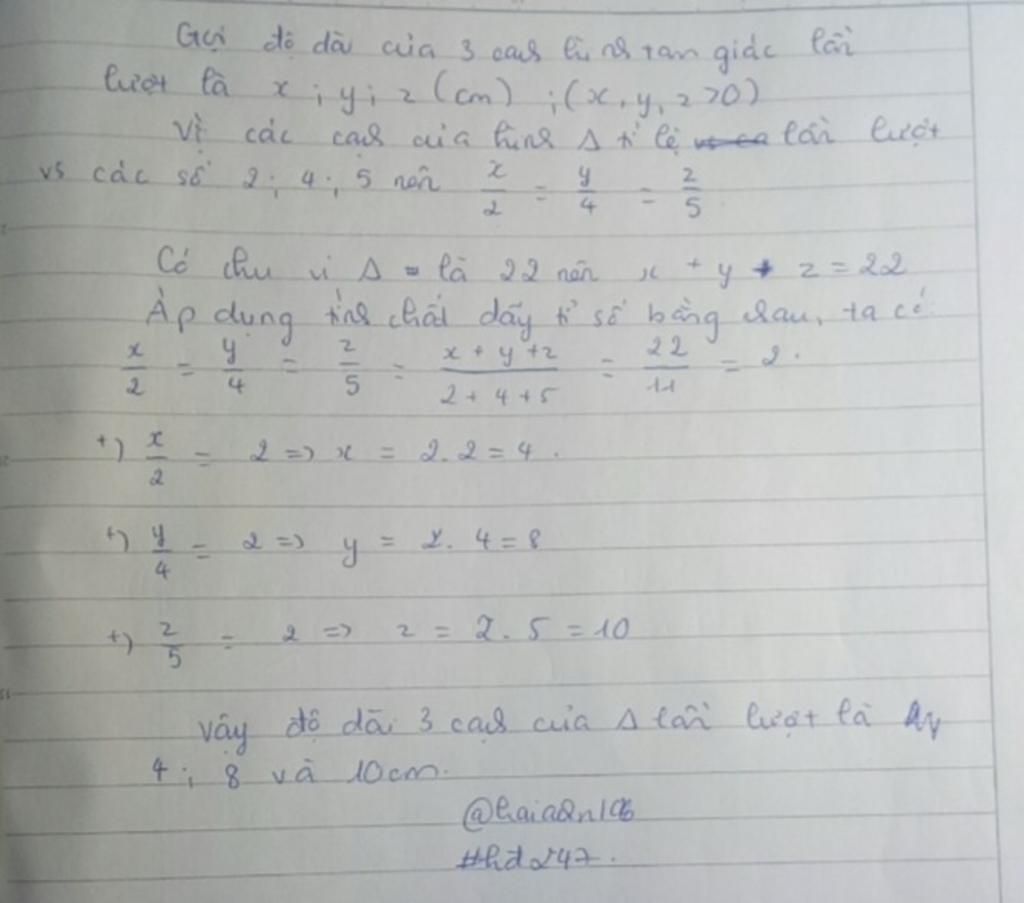 Gọi độ dài của 3 cạnh hình tam giác lần
lượt là x; y; z (cm); (x, y, z >0)
Vì các cạnh của hình Δ tỉ lệ lần lượt
vs các số 2; 4; 5 nên x/2 = y/4 = z/5
Có chu vi Δ là 22 nên x + y + z = 22
Áp dụng tính chất dãy tỉ số bằng nhau, ta có:
x/2 = y/4 = z/5 = (x + y + z)/(2 + 4 + 5) = 22/11 = 2.
+) x/2 = 2 => x = 2.2 = 4.
+) y/4 = 2 => y = 2.4 = 8
+) z/5 = 2 => z = 2.5 = 10
Vậy độ dài 3 cạnh của Δ lần lượt là
4; 8 và 10cm.
#hd247.